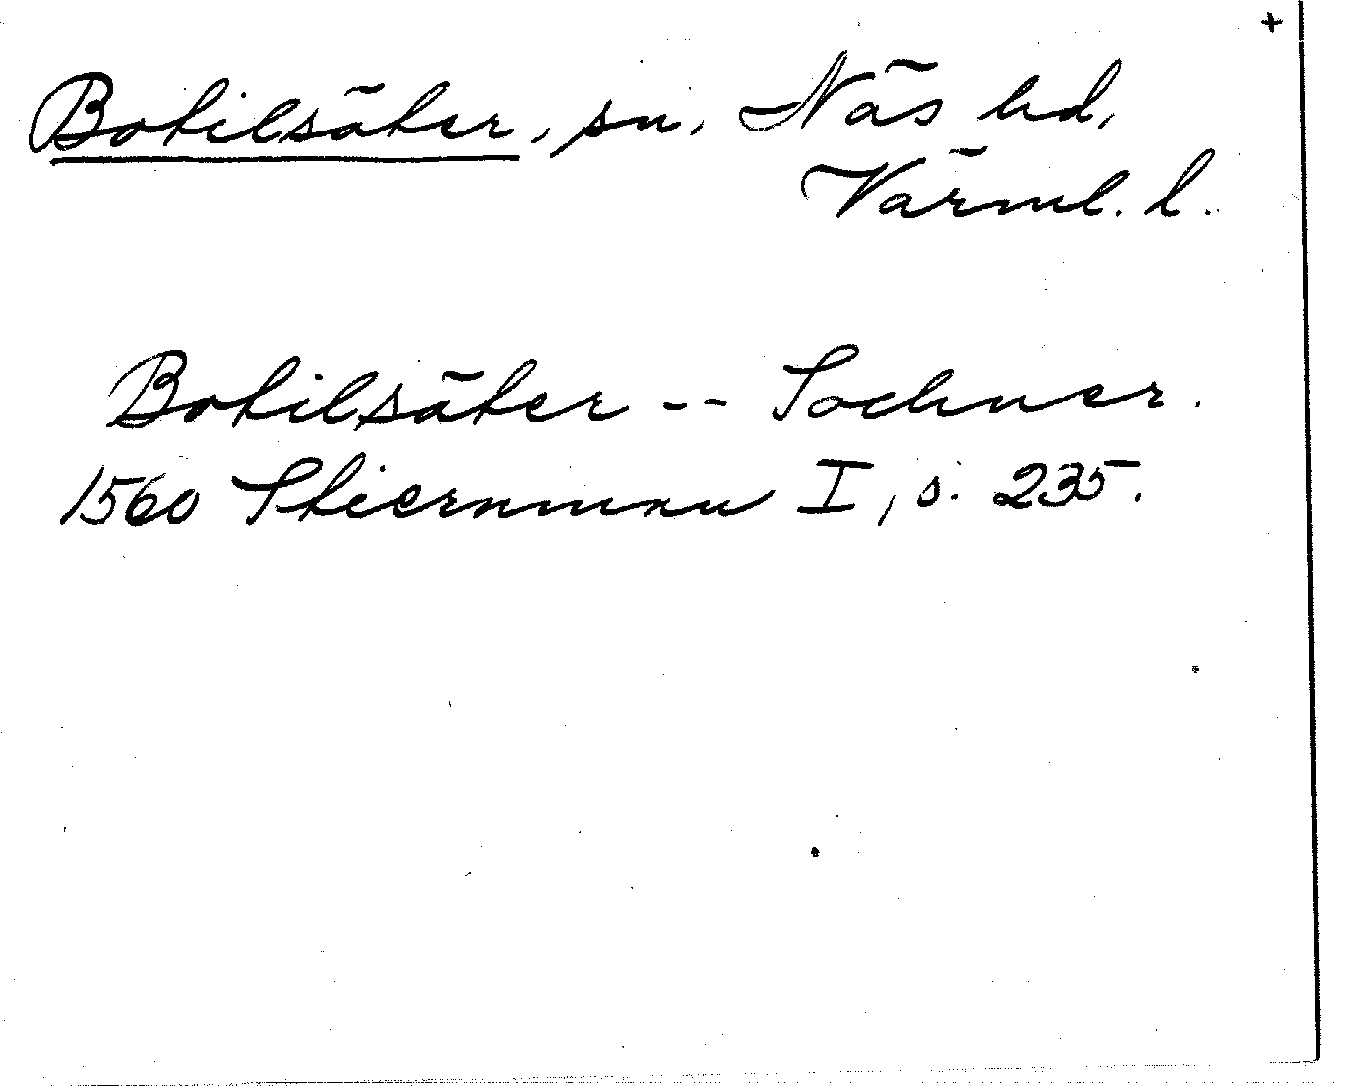 +
Botilsäter, sn, Näs hd,
Värml. l.
Botilsäter -- Sochner.
1560 Stiernman I, s. 235.